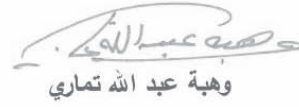 وهبة عبد الله
وهبة عبد الله تماري